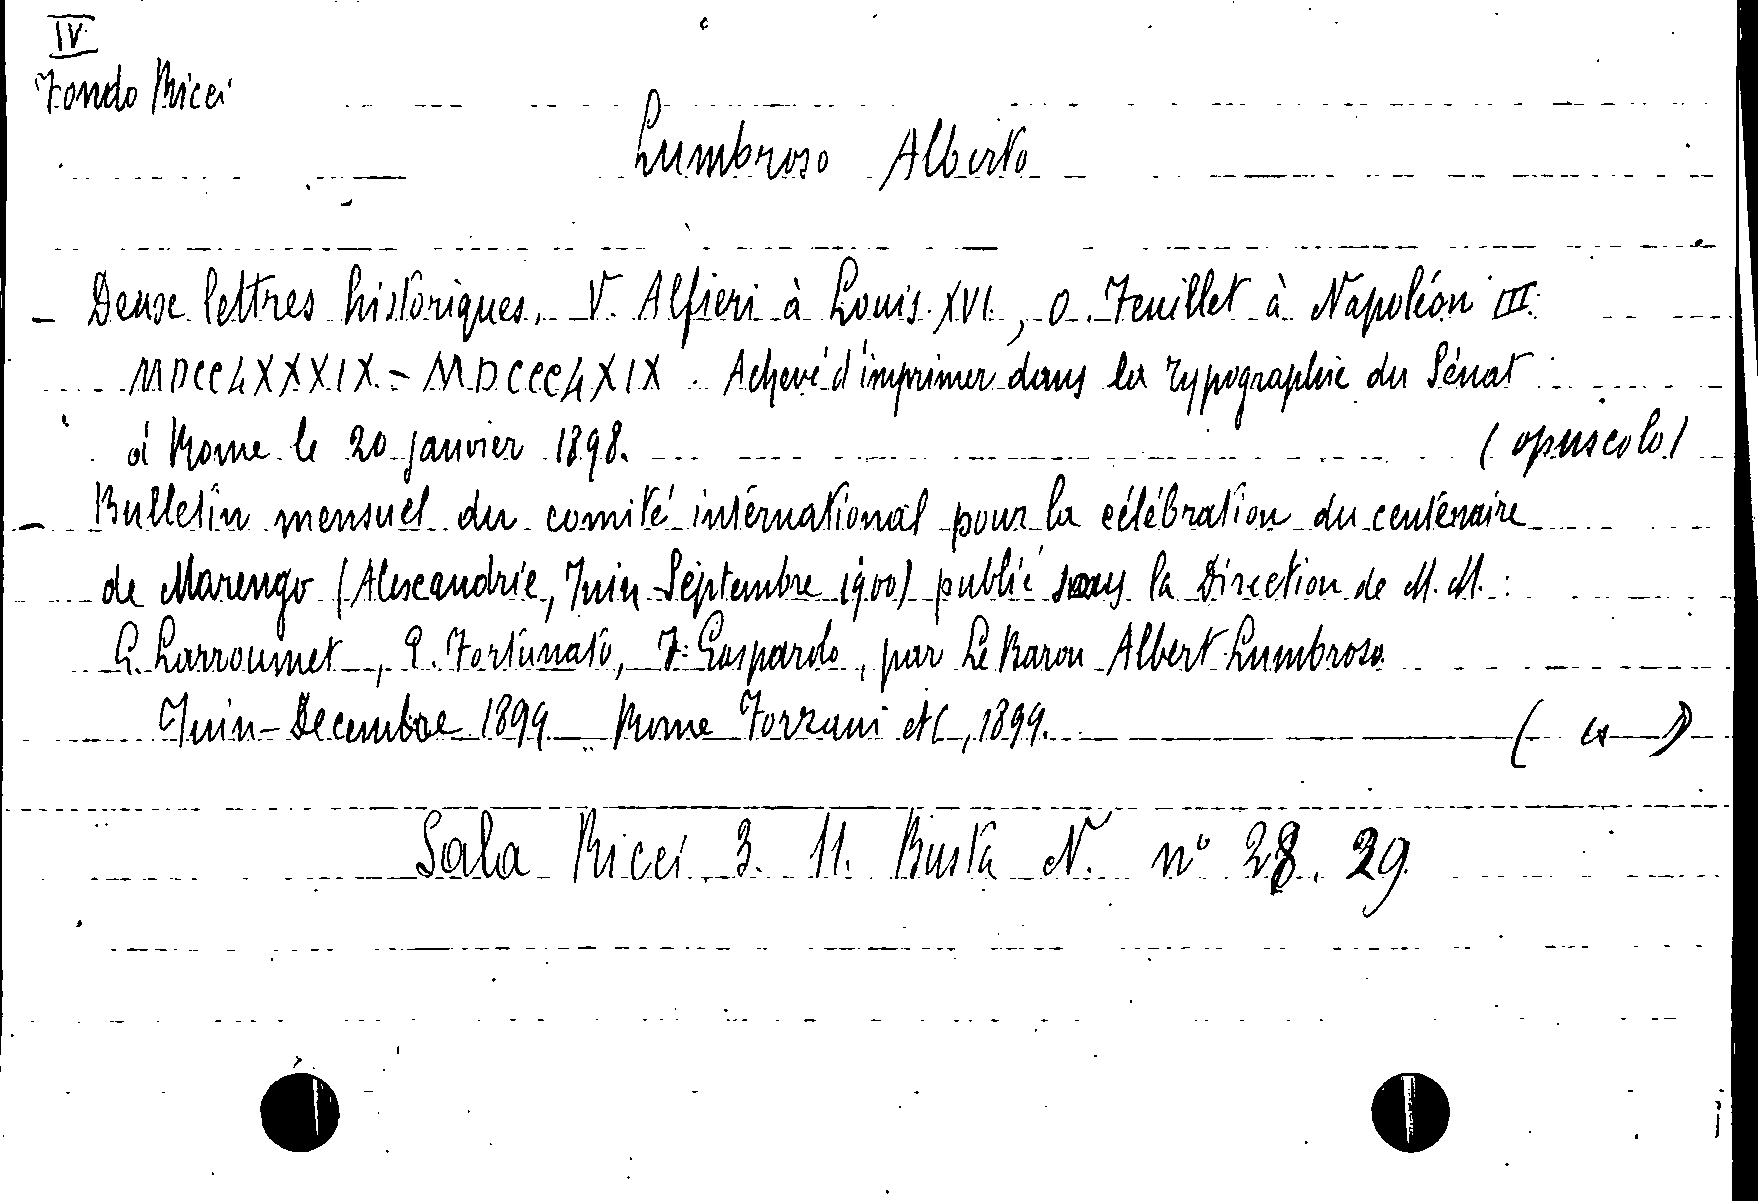 IV
Fondo Ricci
Lumbroso Alberto
- Deuxe lettres historiques. V. Alfieri à Louis XVI, O. Feuillet à Napoléon III.
MDCCLXXXIX - MDCCCLXIX. Achevé d'imprimer dans la Typographie du Sénat
á Rome le 20 janvier 1898. (opuscolo)
- Bulletin mensuel du comité international pour la célébration du centenaire
de Marengo (Alexandrie, Juin-Septembre 1900) publié sous la Direction de M.M.:
G. Larroumet, P. Fortunato, F. Gasparolo, par Le Baron Albert Lumbroso
Juin-Decembre 1899 Rome Forzani etC, 1899. ( )
Sala Ricci 3. 11. Busta N. n° 28. 29